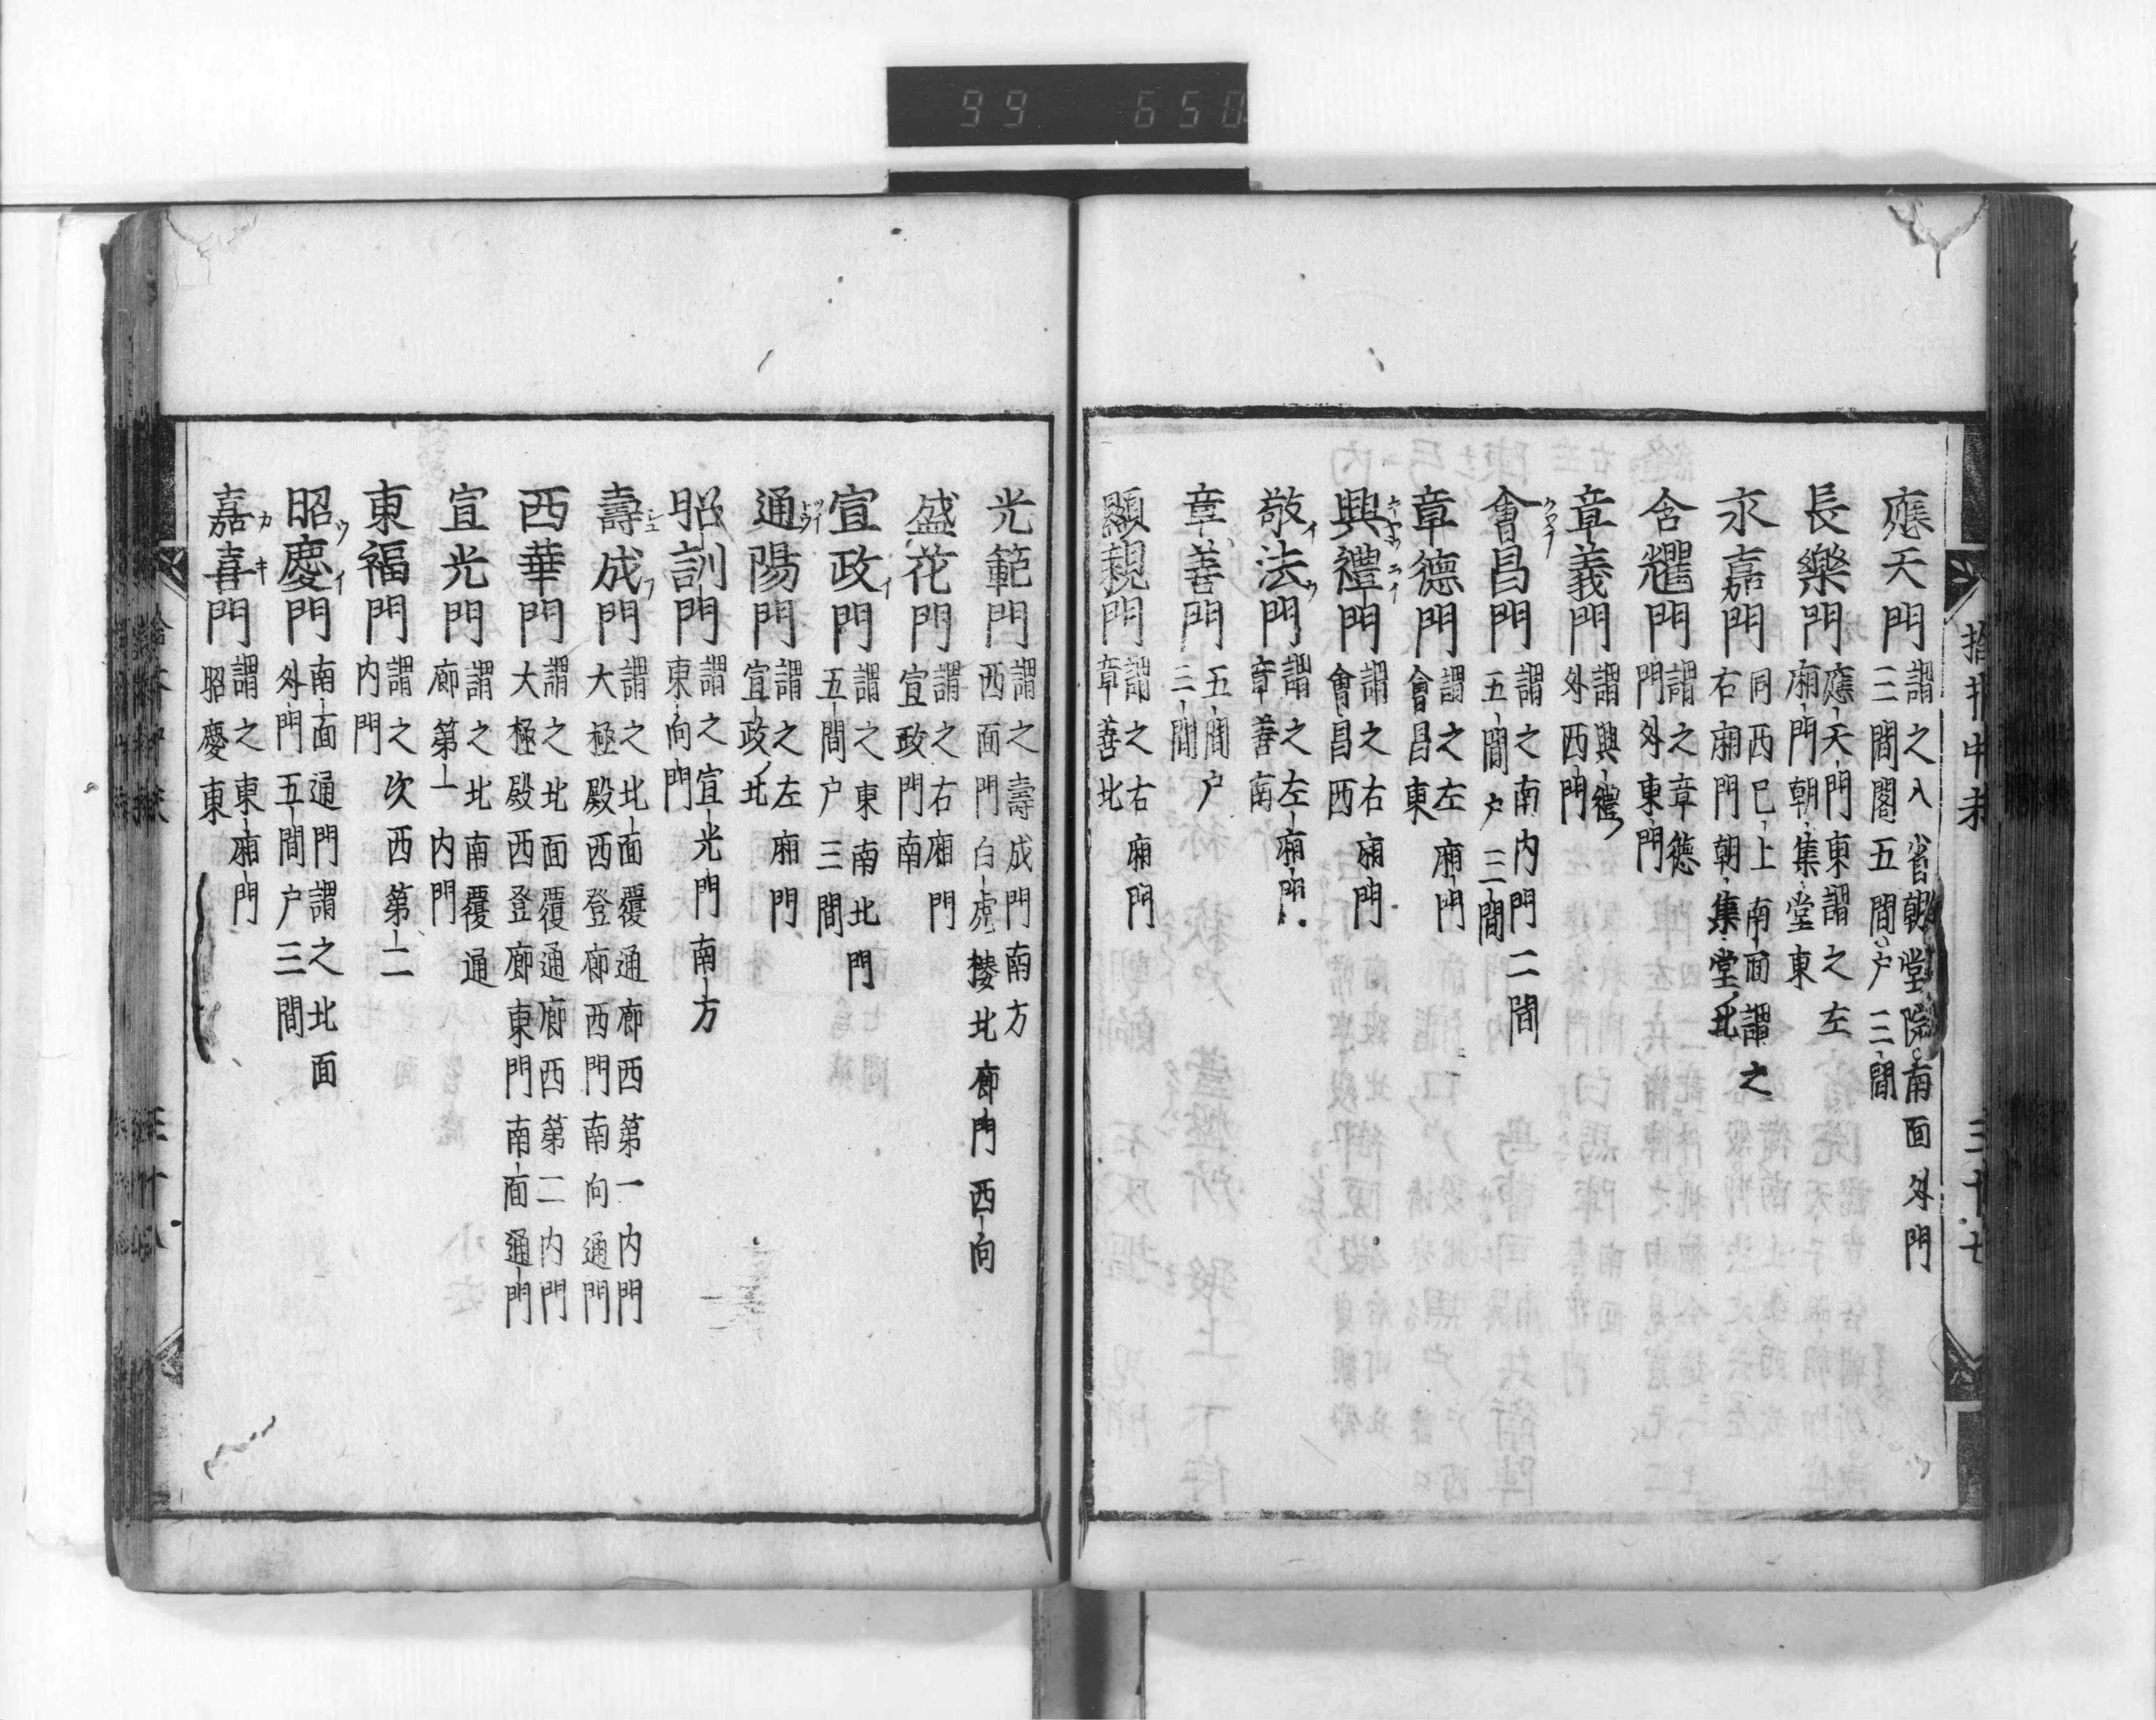 99 650
應天門 謂之八省朝堂院南面外門
二三間閣五間戸三間
長樂門 應天門東謂之左
廂門朝集堂東
永嘉門 同西已上南面謂之
右廂門朝集堂北
含耀門 謂之章德
門外東門
章義門 謂興禮
外西門
會昌門 謂之南内門二間
五間戸三間
章德門 謂之左廂門
會昌東
興禮門 謂之右廂門
會昌西
敬法門 謂之左廂門
章善南
章善門 五間戸
三間
顯親門 謂之右廂門
章善北
三十七
光範門 謂之壽成門南方
西面門白虎樓北廊門西向
盛花門 謂之右廂門
宣政門南
宣政門 謂之東南北門
五間戸三間
通陽門 謂之左廂門
宣政北
昭訓門 謂之宣光門南方
東向門
壽成門 謂之北面覆通廊西第一内門
大極殿西登廊西門南向通門
西華門 謂之北面覆通廊西第二内門
大極殿西登廊東門南面通門
宣光門 謂之北南覆通
廊第一内門
東福門 謂之次西第二
内門
昭慶門 南面通門謂之北面
外門五間戸三間
嘉喜門 謂之東廂門
昭慶東